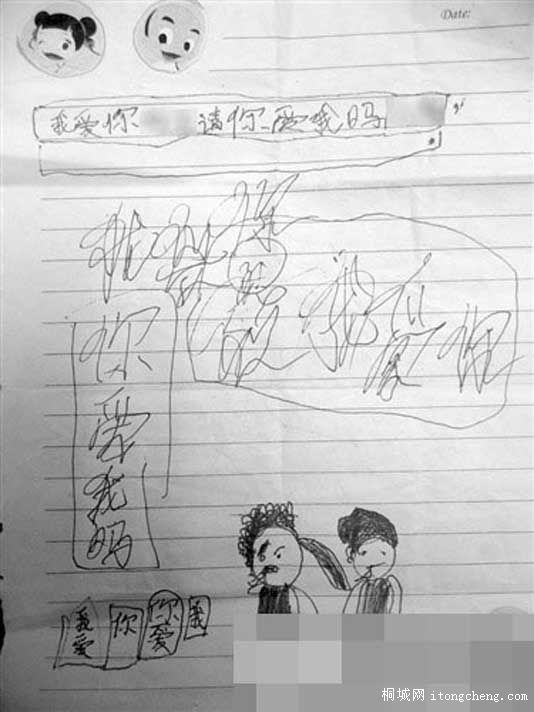 Date:
我爱你 请你爱我吗
我爱你
做我
你爱我吗
我爱 你 你爱 我
桐城网 itongcheng.com